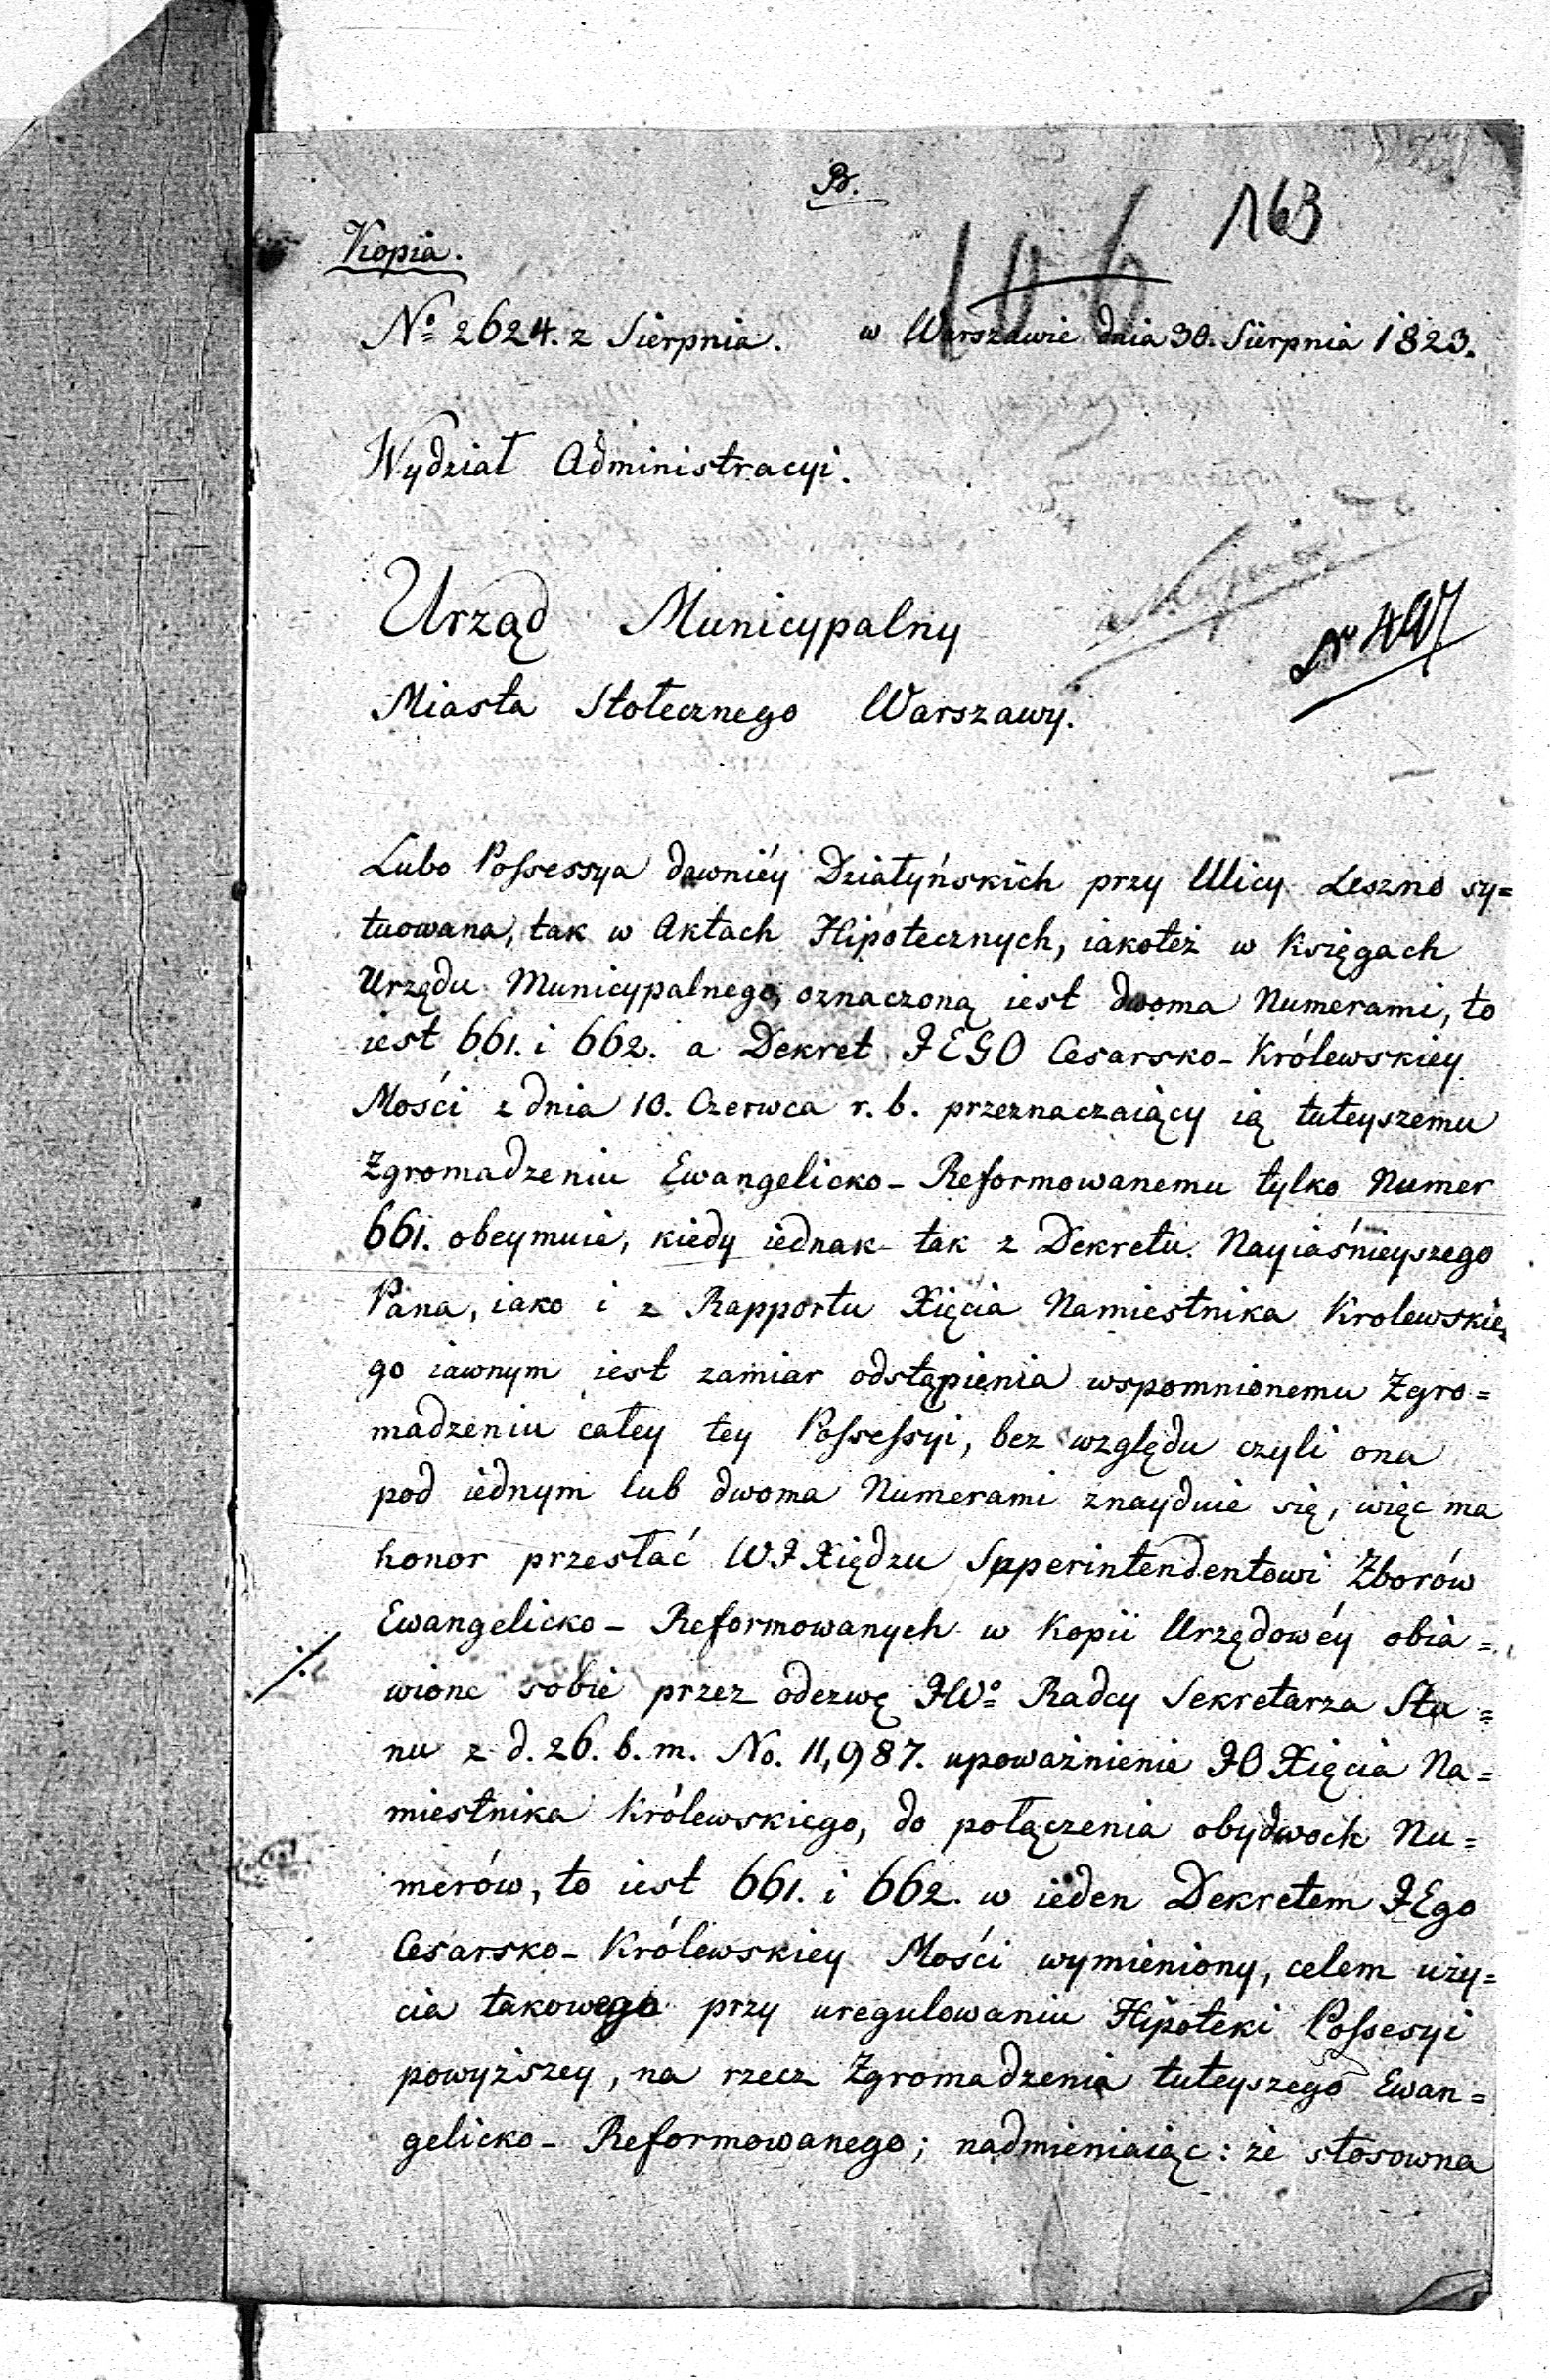 B.
163
106
Kopia.
No 2624. z Sierpnia. w Warszawie dnia 30. Sierpnia 1823.
Wydział Administracyi.
Urząd Municypalny
No 497
Miasta Stołecznego Warszawy.
Lubo Possessya dawniéy Działyńskich przy Ulicy Leszno sy=
tuowana, tak w Aktach Hipotecznych, iakoteż w Księgach
Urzędu Municypalnego, oznaczoną iest dwoma Numerami, to
iest 661. i 662. a Dekret JEGO Cesarsko-Królewskiey
Mości z dnia 10. Czerwca r. b. przeznaczaiący ią tuteyszemu
Zgromadzeniu Ewangelicko-Reformowanemu tylko Numer
661. obeymuie, kiedy iednak tak z Dekretu Nayiaśnieyszego
Pana, iako i z Rapportu Xięcia Namiestnika Krolewskie
go iawnym iest zamiar odstąpienia wspomnionemu Zgro=
madzeniu całey tey Possessyi, bez względu czyli ona
pod iednym lub dwoma Numerami znayduie się, więc ma
honor przesłać WJ Xiędzu Superintendentowi Zborów
Ewangelicko-Reformowanych w Kopii Urzędowéy obia=
wione sobie przez odezwę JWo Radcy Sekretarza Sta=
nu z d. 26. b. m. No. 11,987. upoważnienie JO Xięcia Na=
miestnika Królewskiego, do połączenia obydwoch Nu=
merów, to iest 661. i 662. w ieden Dekretem JEgo
Cesarsko-Królewskiey Mości wymieniony, celem uży=
cia takowego przy uregulowaniu Hipoteki Possesyi
powyższey, na rzecz Zgromadzenia tuteyszego Ewan=
gelicko-Reformowanego; nadmieniaiąc: że stosowna